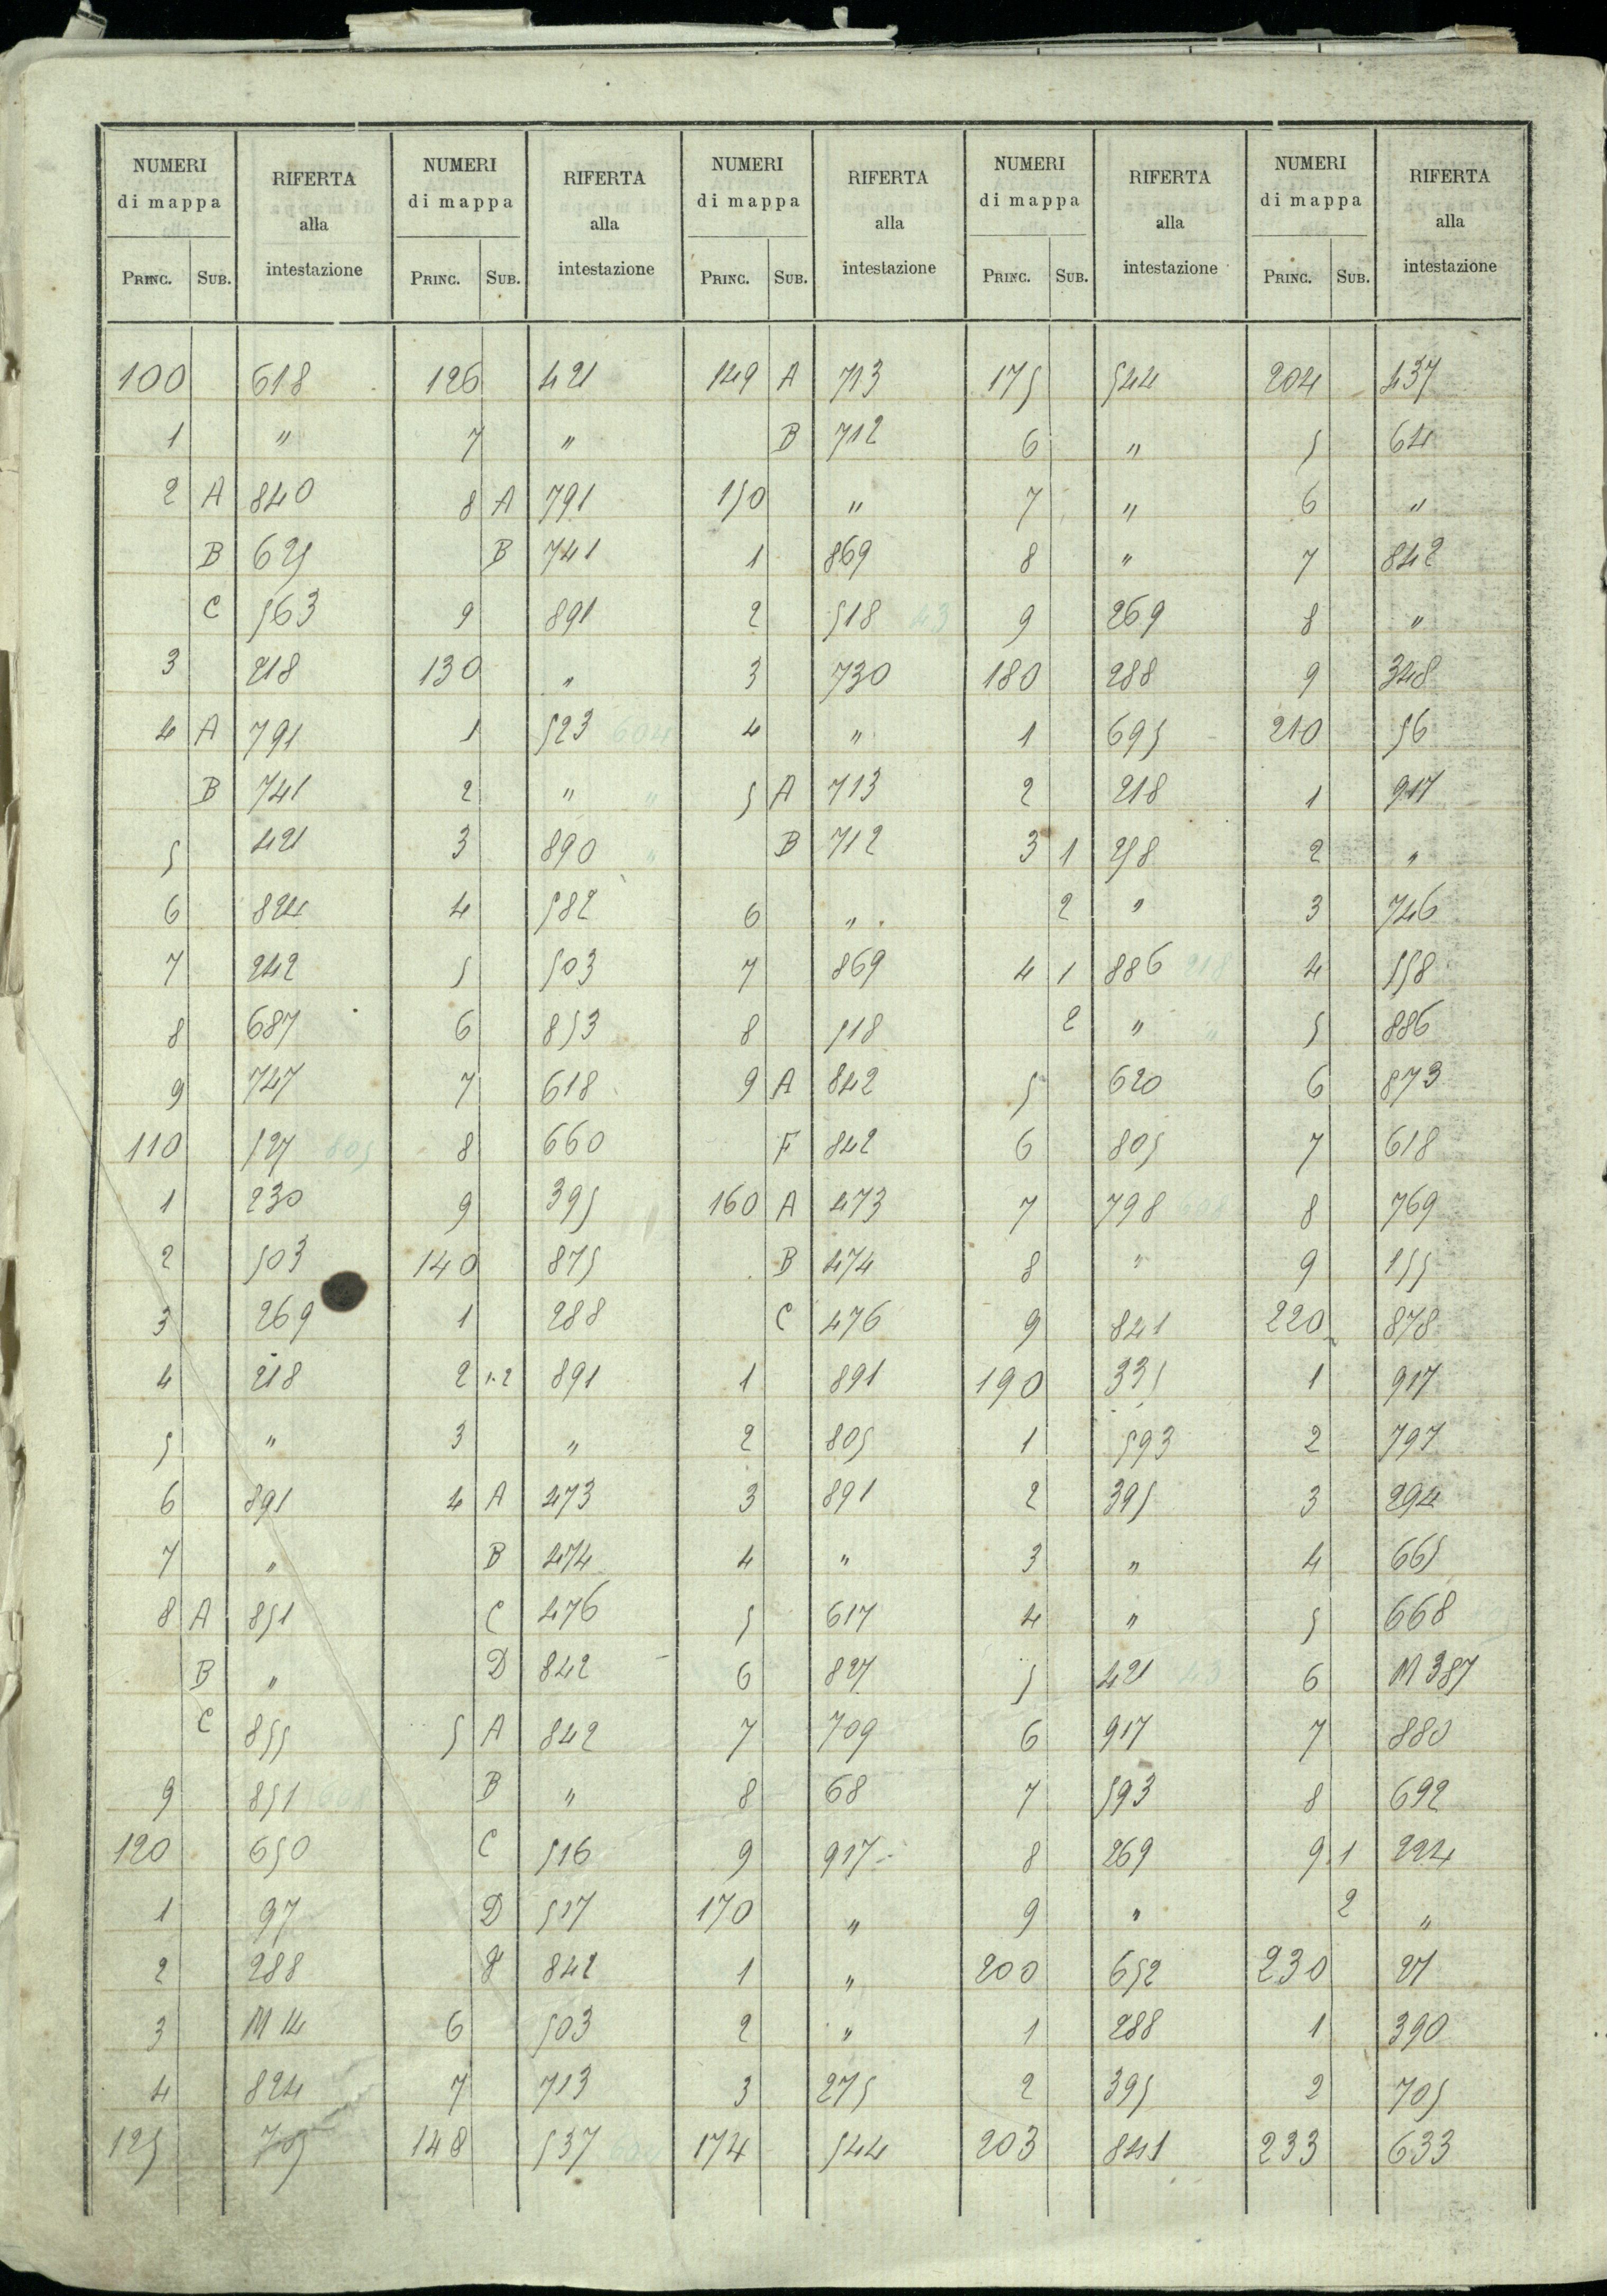 NUMERI di mappa RIFERTA alla intestazione NUMERI di mappa RIFERTA alla intestazione NUMERI di mappa RIFERTA alla intestazione NUMERI di mappa RIFERTA alla intestazione NUMERI di mappa RIFERTA alla intestazione
PRINC. SUB. PRINC. SUB. PRINC. SUB. PRINC. SUB. PRINC. SUB.
100 618 126 421 149 A 713 175 544 204 437
1 " 7 " B 712 6 " 5 64
2 A 840 8 A 791 150 " 7 " 6 "
B 625 B 741 1 869 8 " 7 842
C 563 9 891 2 518 43 9 269 8 "
3 218 130 " 3 730 180 288 9 348
4 A 791 1 523 604 4 " 1 695 210 56
B 741 2 " " 5 A 713 2 218 1 917
5 421 3 890 " B 712 3 1 258 2 "
6 824 4 582 6 " 2 " 3 746
7 242 5 503 7 869 4 1 886 218 4 558
8 687 6 853 8 518 2 " " 5 886
9 747 7 618 9 A 842 5 620 6 873
110 527 805 8 660 F 842 6 805 7 618
1 230 9 395 160 A 473 7 798 8 769
2 503 140 875 B 474 8 " 9 155
3 269 1 288 C 476 9 841 220 878
4 218 2 1.2 891 1 891 190 335 1 917
5 " 3 " 2 805 1 593 2 797
6 891 4 A 473 3 891 2 395 3 294
7 " B 474 4 " 3 " 4 665
8 A 851 C 476 5 617 4 " 5 668
B " D 842 6 827 5 421 43 6 M 387
C 855 5 A 842 7 709 6 917 7 880
9 851 B " 8 68 7 593 8 692
120 650 C 516 9 917 8 269 9 1 224
1 97 D 517 170 " 9 " 2 "
2 288 842 1 " 200 652 230 27
3 M 14 6 503 2 " 1 288 1 390
4 824 7 713 3 275 2 395 2 705
125 705 148 537 174 544 203 841 233 633